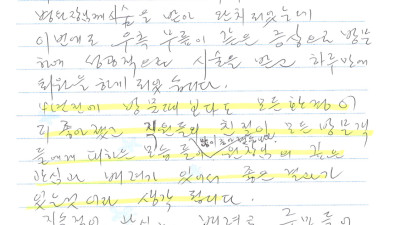 병원장님께 시술을 받아 완치되었는데
이번에도 우측 무릎이 같은 증상으로 방문
하여 성공적으로 시술을 받고 하루만에
퇴원을 하게 되었습니다.
4년전에 방문때 보다도 모든 환경이
더 좋아졌고 직원들의 친절이 모든 방문객
들에게 대하는 모습들이 원장님의 깊은
관심과 배려가 있어서 좋은 결과가
있는것이라 생각 됩니다.
관심과 배려로